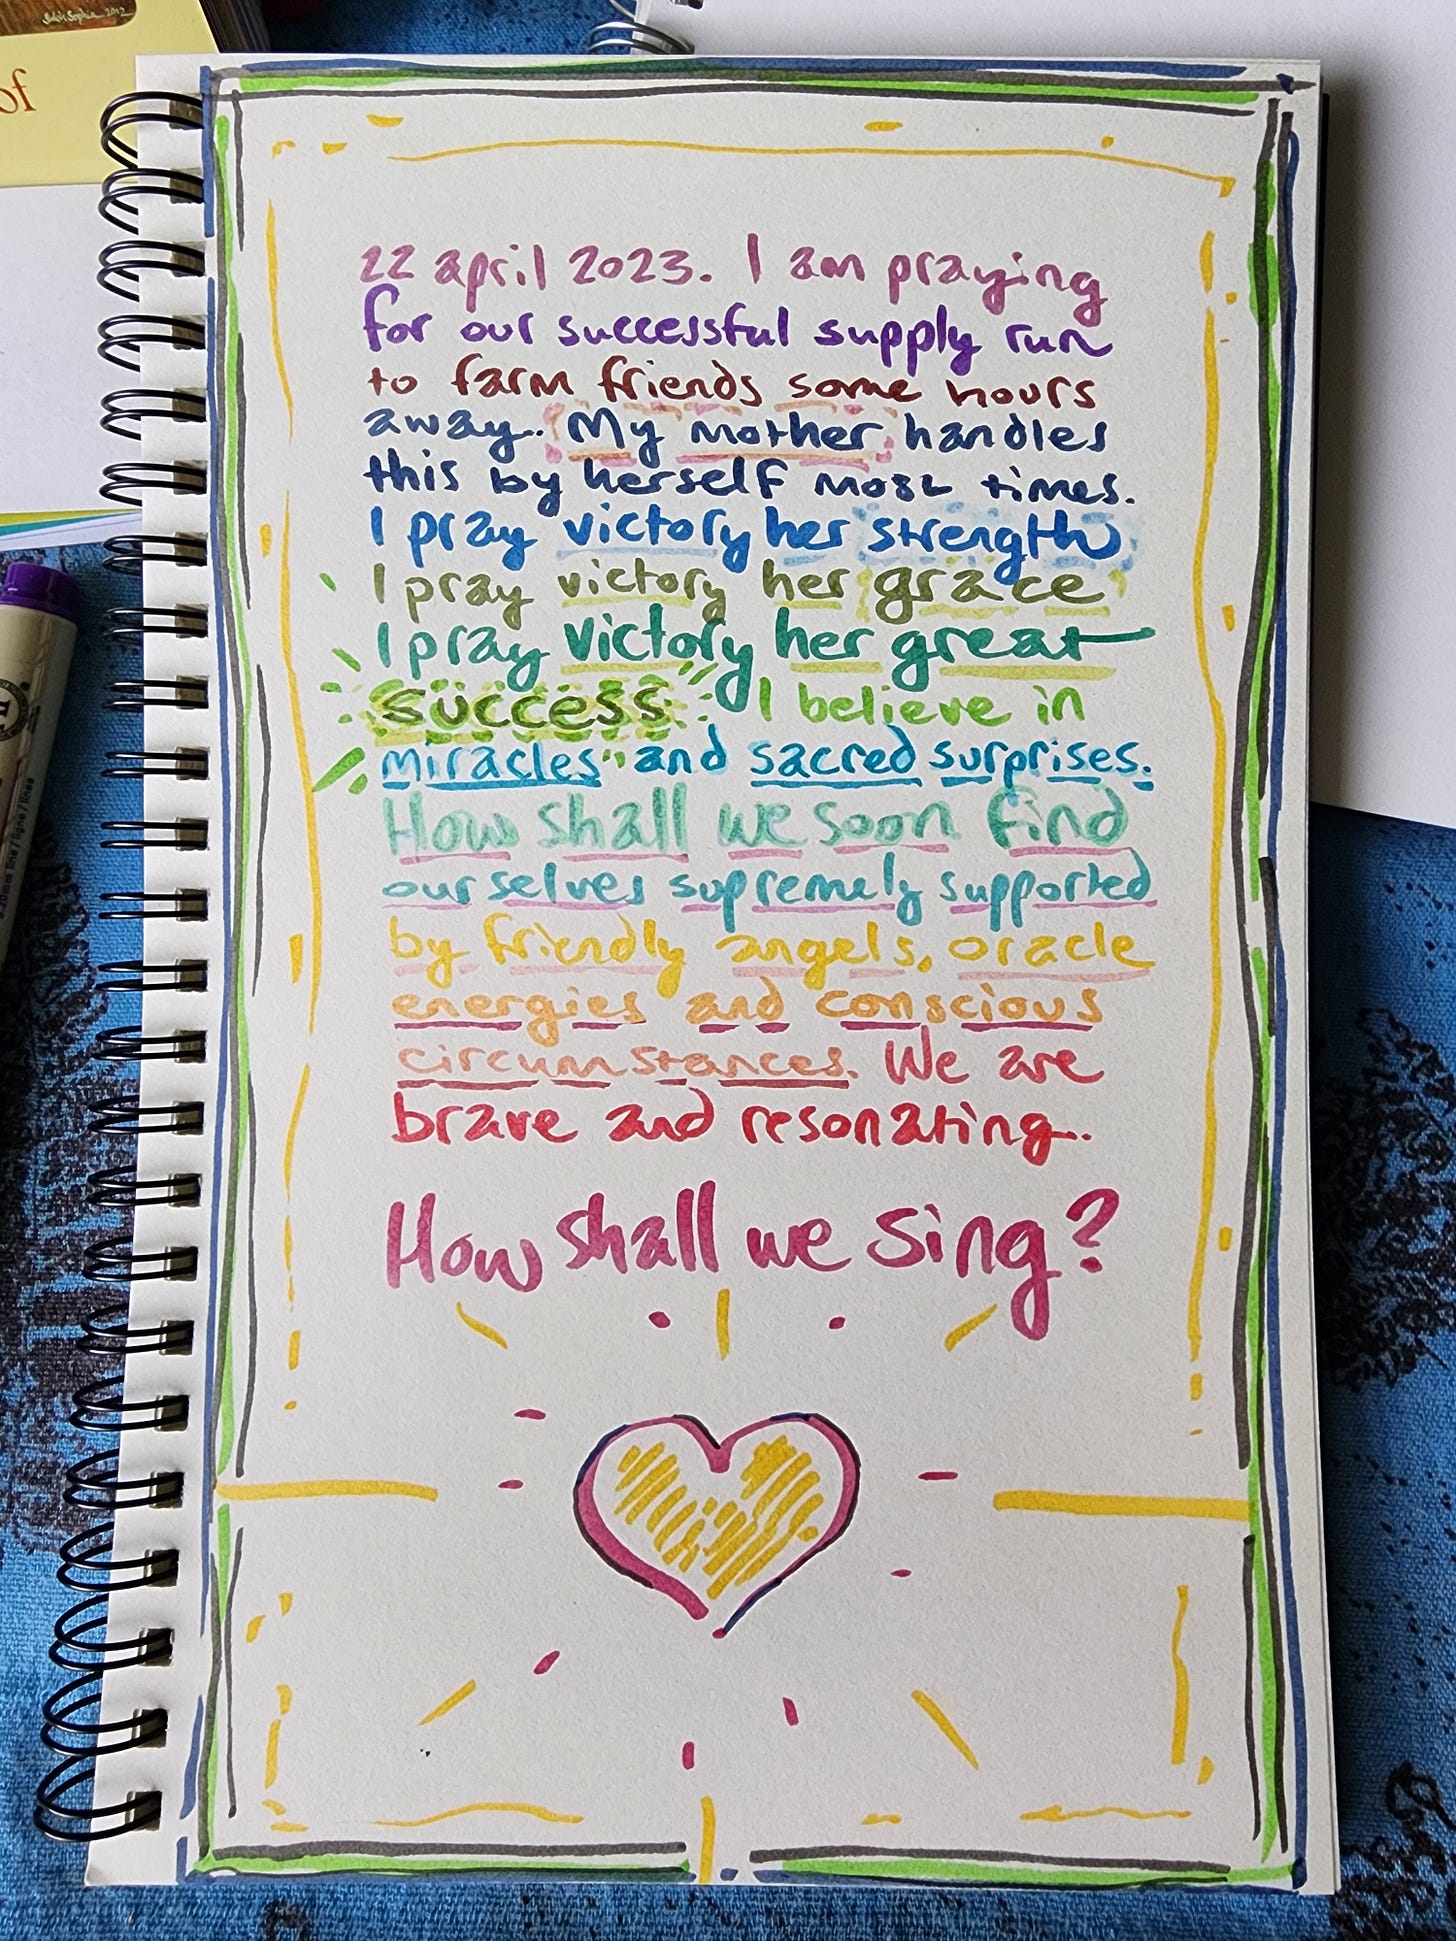 Sulih Sophia 2012
of
22 april 2023. I am praying
for our successful supply run
to farm friends some hours
away. My mother handles
this by herself most times.
I pray victory her strength
I pray victory her grace
I pray victory her great
success. I believe in
miracles and sacred surprises.
How shall we soon find
ourselves supremely supported
by friendly angels, oracle
energies and conscious
circumstances. We are
brave and resonating.
How shall we sing?
line / ligne / línea